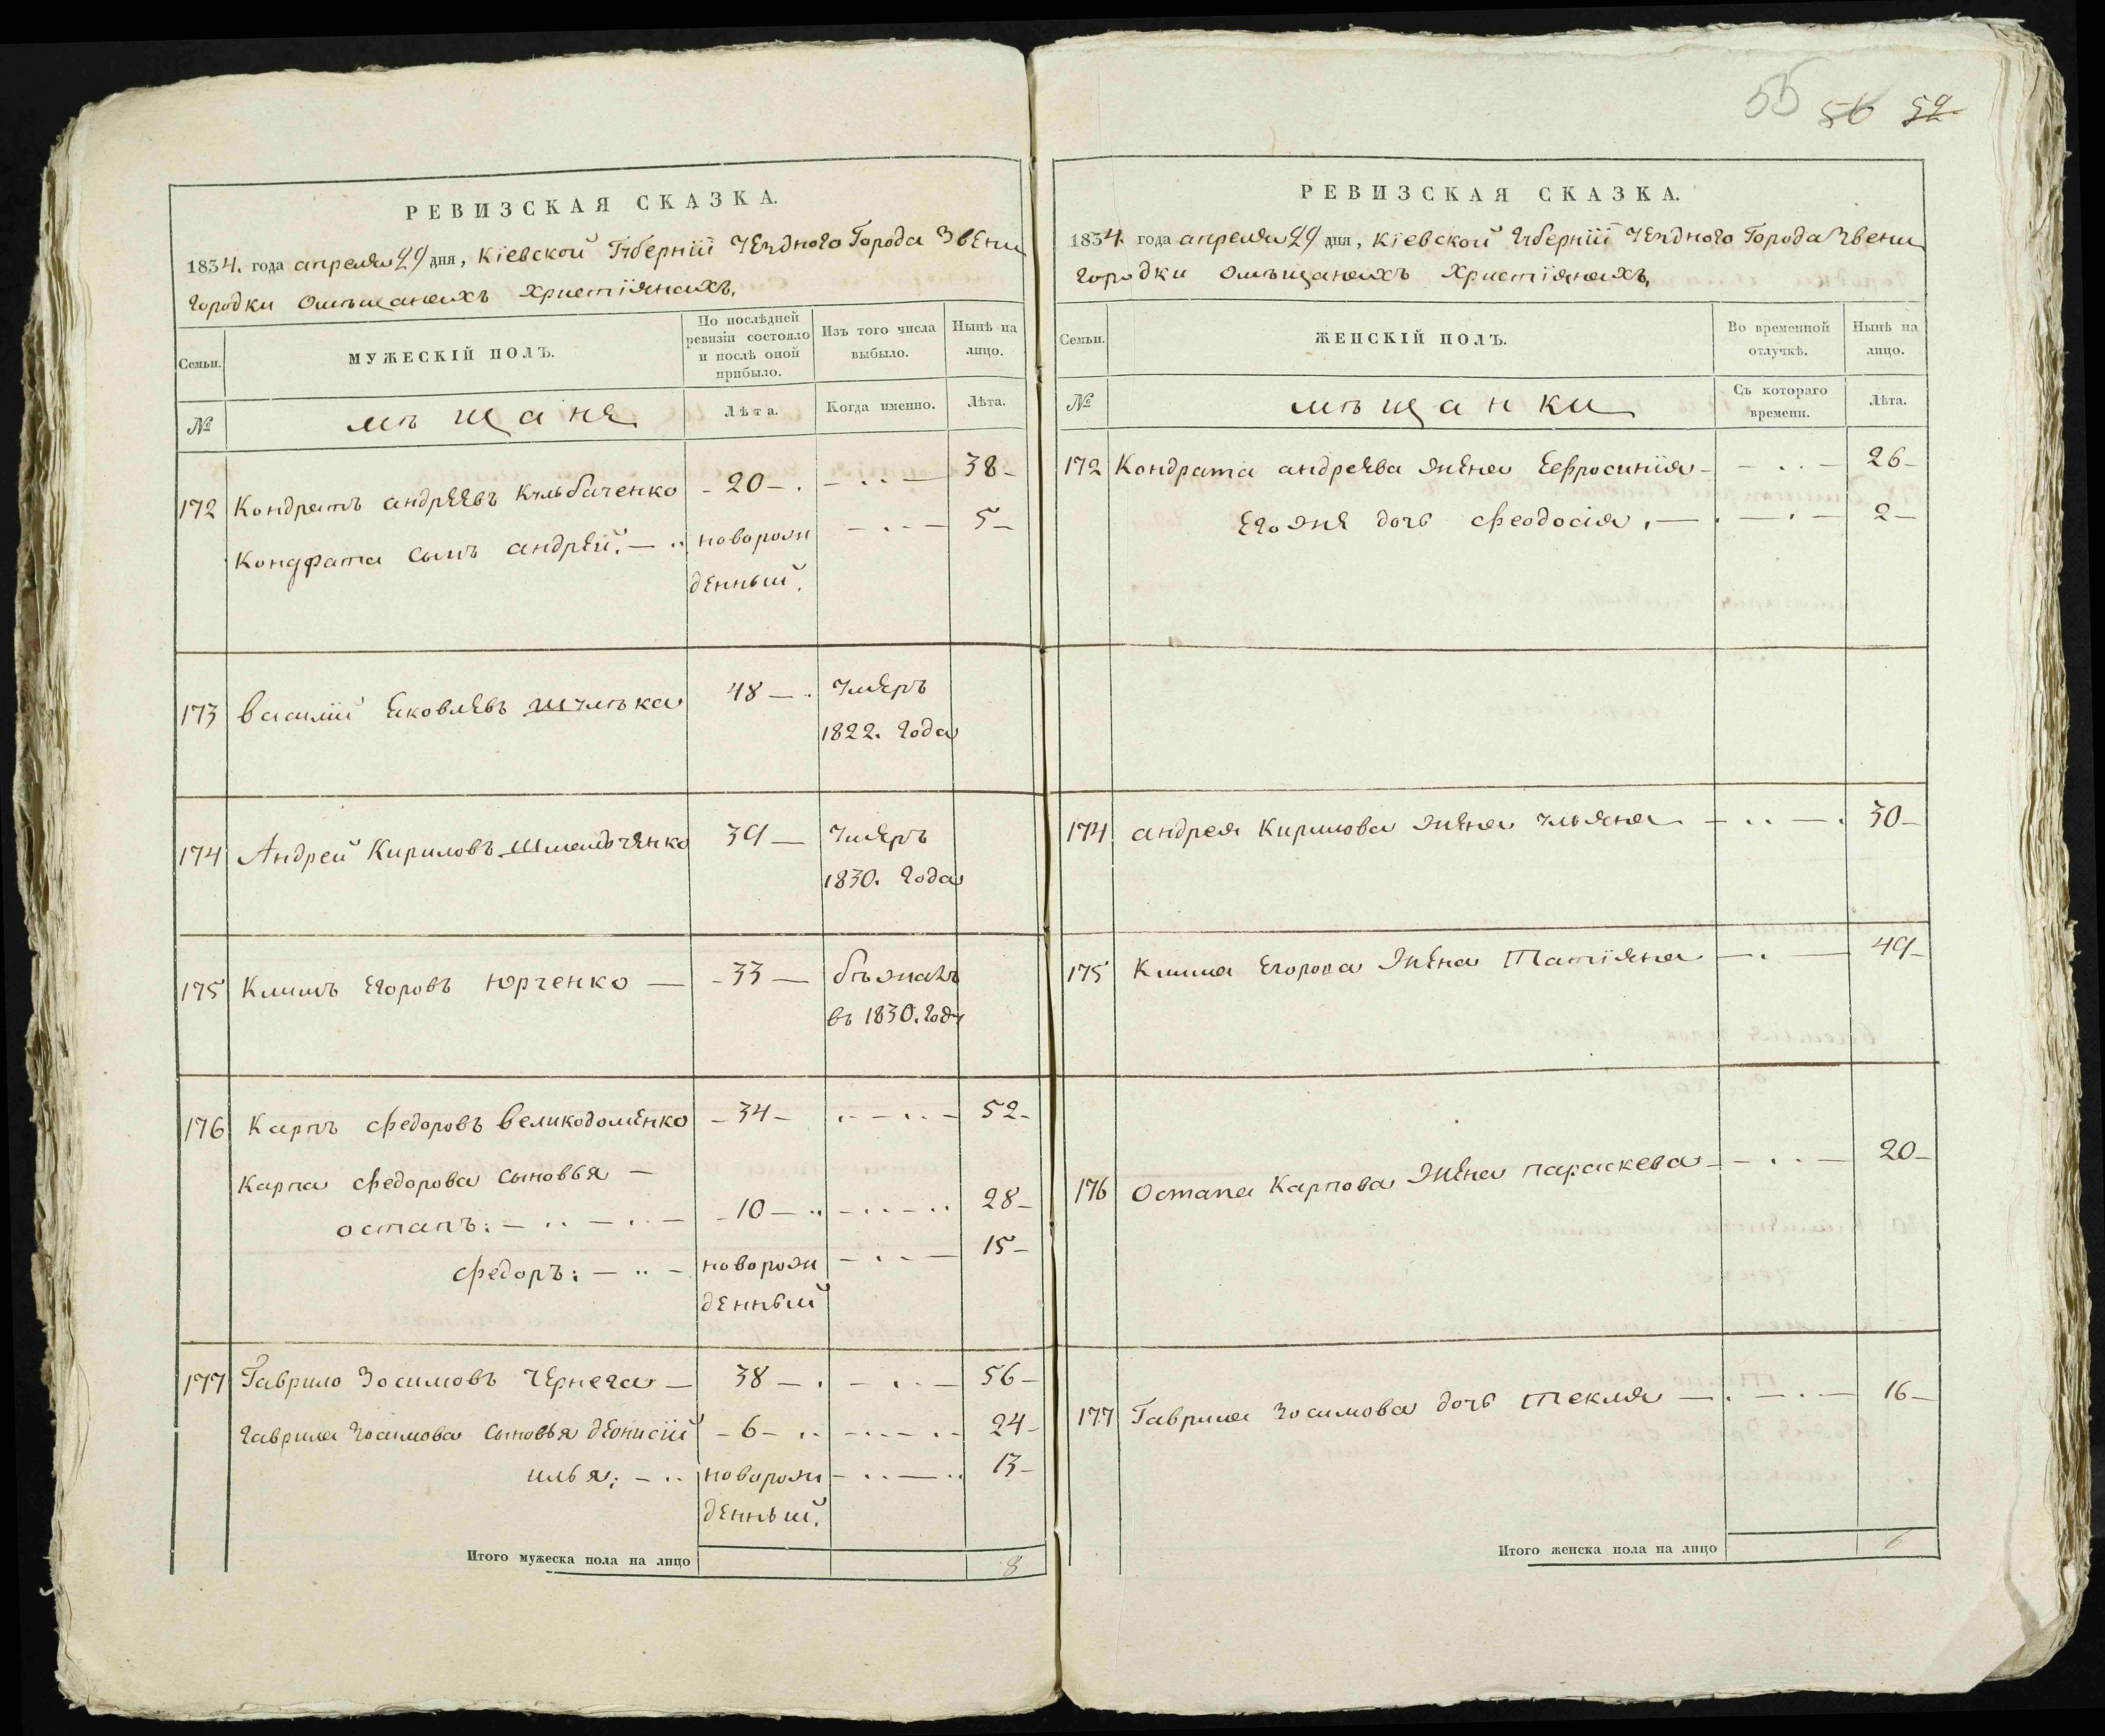 55 56 52
РЕВИЗСКАЯ СКАЗКА.
1834. года апреля 29 дня, Кіевской Губерніи Уезднаго Города Звени
городки омѣщанахъ христіянахъ.
Семьи.
МУЖЕСКІЙ ПОЛЪ.
По послѣдней ревизіи состояло и послѣ оной прибыло.
Изъ того числа выбыло.
Нынѣ на лицо.
№
мѣщане
Лѣта.
Когда именно.
Лѣта.
172 Кондратъ андрЕЕвъ Кульбаченко - 20 - . - . . - 38 -
Кондрата сынъ андрЕй. - .. новорож - . - 5 -
дЕнный.
173 василій Ековлевъ Шулѣка 48 - . Умеръ
1822. года
174 Андрей Кириловъ Шмельченко 39 - Умеръ
1830. года
175 Климъ Егоровъ Юрченко - - 33 - бѣжалъ
въ 1830. году
176 Карпъ федоровъ великодоменко - 34 - . - . . - 52 -
Карпа федорова сыновья -
остапъ: - .. - .. - - 10 - .. - . . - .. 28 -
федоръ: - .. - новорож - . - 15 -
денный
177 Гаврило Зосимовъ Чернега - 38 - . - . - 56 -
гаврила Зосимова сыновья дЕонисій - 6 - .. - . . - .. 24 -
илья; - .. новорож - . . - .. 13 -
дЕнный.
Итого мужеска пола на лицо 8
РЕВИЗСКАЯ СКАЗКА.
1834. года апреля 29 дня, Кіевской Губерніи Уезднаго Города Звени
городки омѣщанахъ христіянахъ.
Семьи.
ЖЕНСКІЙ ПОЛЪ.
Во временной отлучкѣ.
Нынѣ на лицо.
№
мѣщанки
Съ котораго времени.
Лѣта.
172 Кондрата андреЕва жена Еефросинія - - . . - 26 -
Его же дочь феодосія . - . - . - 2 -
174 андрея Кирилова жена ульяна - . . - . 30 -
175 Клима Егорова жена Татіяна - . - 49 -
176 Остапа Карпова жена параскева - - . . - 20 -
177 Гаврила Зосимова дочь Текля - . - . - 16 -
Итого женска пола на лицо 6